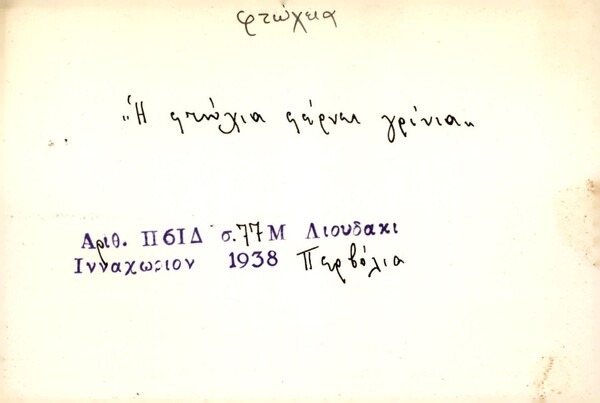 φτώχεια
„Ἡ φτώχια φέρνει γρίνια„
Αριθ. Π6ΙΔ σ. 77 Μ Λιουδακι
Ινναχωριον 1938 Περβόλια